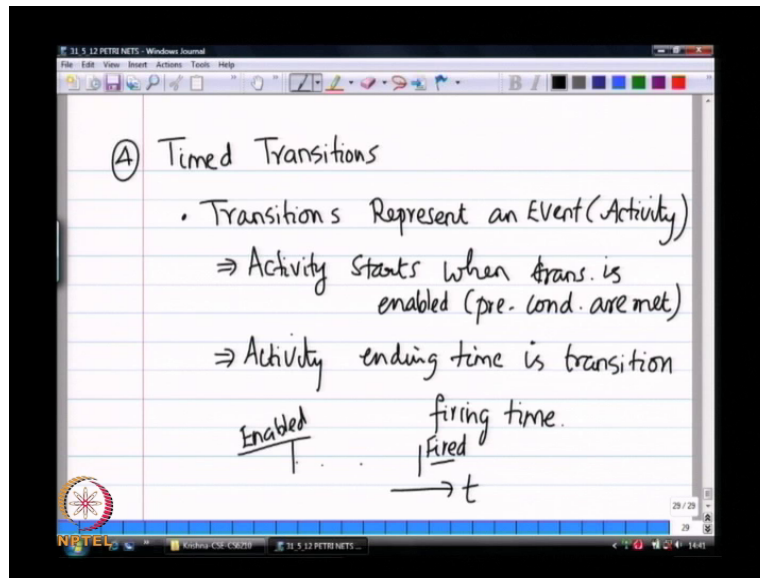 31_5_12 PETRI NETS - Windows Journal
File Edit View Insert Actions Tools Help
B I
④ Timed Transitions
• Transitions Represent an Event (Activity)
⇒ Activity starts when trans. is
enabled (pre. cond. are met)
⇒ Activity ending time is transition
firing time.
Enabled
Fired
t
29 / 29
29
NPTEL
Krishna-CSE-CS6210
31_5_12 PETRI NETS ...
14:41